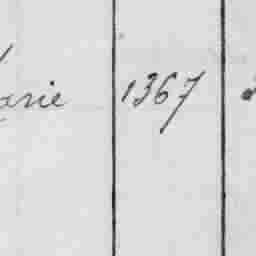 arie 1367